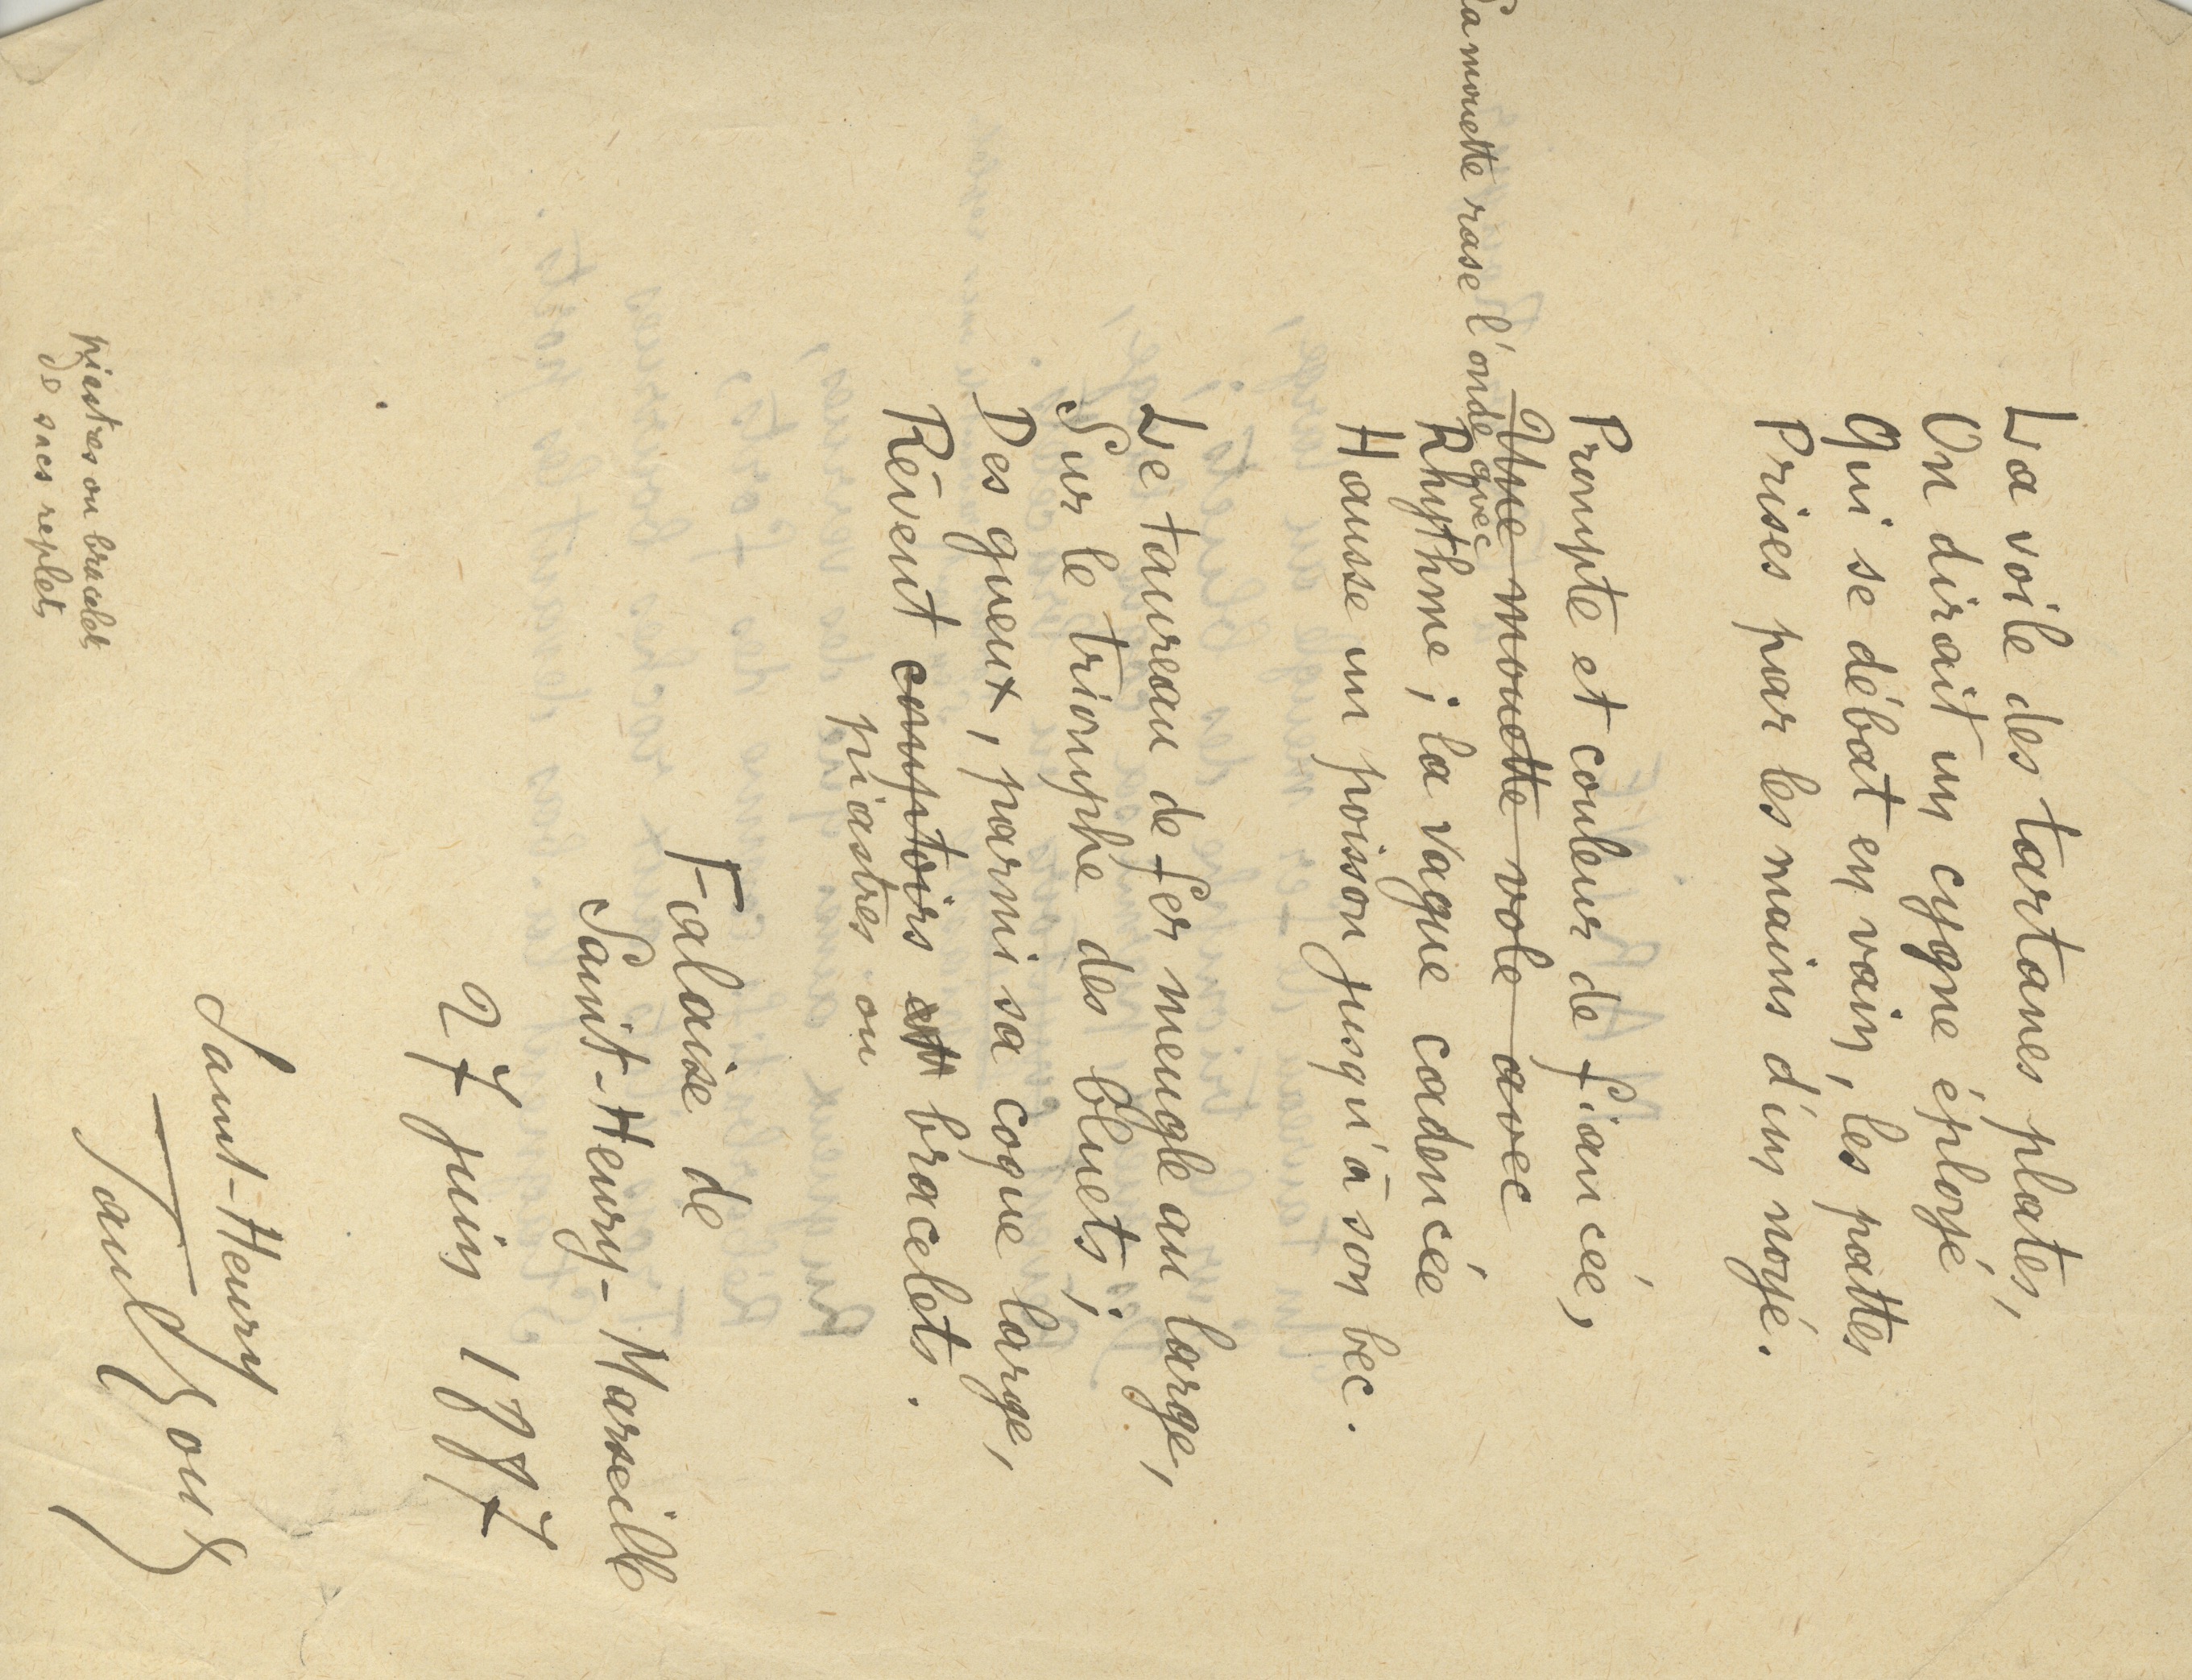 La voile des tartanes plates,
On dirait un cygne éployé
Qui se débat en vain, les pattes
Prises par les mains d'un noyé.
Prompte et couleur de fiancée,
Une mouette vole avec
La mouette rase l'onde avec
Rhythme ; la vague cadencée
Hausse un poisson jusqu'à son bec.
Le taureau de fer meugle au large,
Sur le triomphe des bluets ;
Des gueux, parmi sa coque large,
Rêvent comptoirs et bracelets.
piastres ou
Falaise de
Saint-Henry-Marseille
27 juin 1887
Saint-Henry
Paul Roux
piastres ou bracelets
de sacs replets